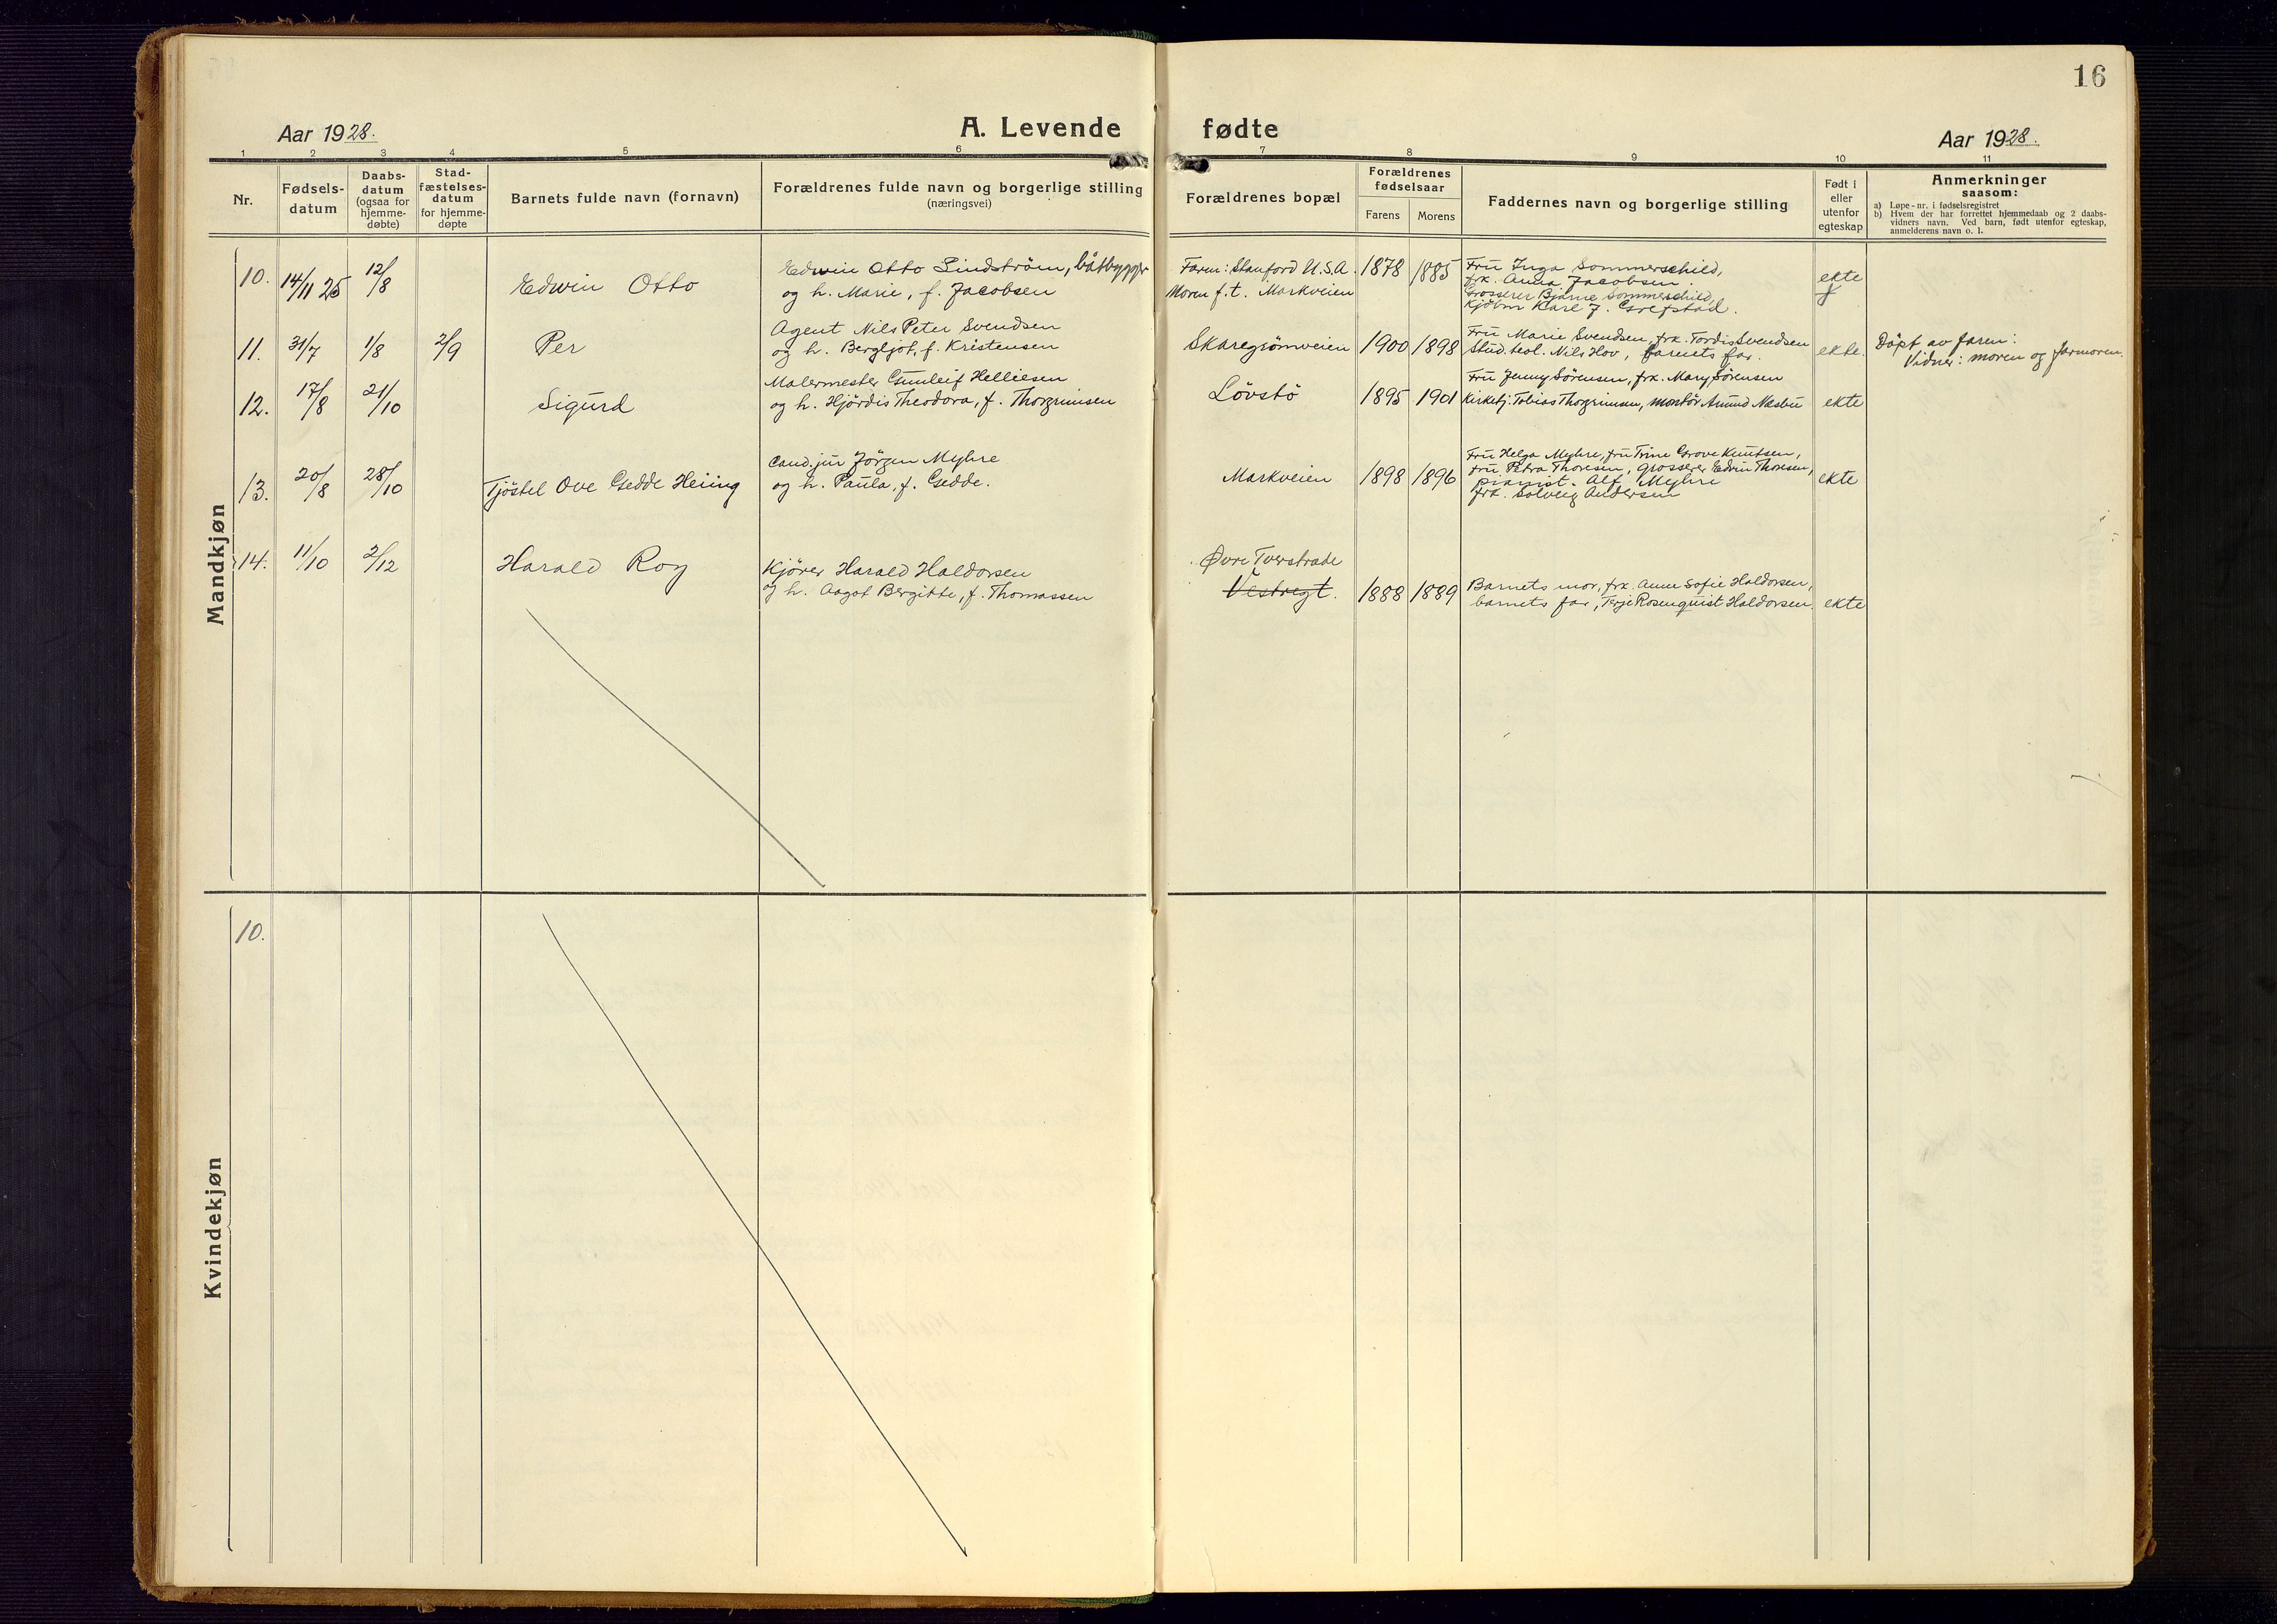 16
Aar 1928.
A. Levende fødte
Aar 1928.
1 2 3 4 5 6 7 8 9 10 11
Nr.
Fødsels-
datum
Daabs-
datum
(ogsaa for
hjemme-
døbte)
Stad-
fæstelses-
datum
for hjemme-
døpte
Barnets fulde navn (fornavn)
Forældrenes fulde navn og borgerlige stilling
(næringsvei)
Forældrenes bopæl
Forældrenes
fødselsaar
Farens Morens
Faddernes navn og borgerlige stilling
Født i
eller
utenfor
egteskap
Anmerkninger
saasom:
a) Løpe-nr. i fødselsregistret
b) Hvem der har forrettet hjemmedaab og 2 daabs-
vidners navn. Ved barn, født utenfor egteskap,
anmelderens navn o. l.
Mandkjøn
10. 14/11 25 12/8 Edwin Otto
Edwin Otto Lindström, båtbygger
og h. Marie, f. Jacobsen
Faren: Stanford U.S.A.
Moren f.t. Markveien
1878 1885
Fru Inga Sommerschild,
frk. Anna Jacobsen.
Grosserer Bjarne Sommerschild,
Kjøbm Karl J. Grefstad.
ekte
11. 31/7 1/8 2/9 Per
Agent Nils Peter Svendsen
og h. Bergljot, f. Kristensen
Skaregrömveien 1900 1898
Fru Marie Svendsen, frk. Tordis Svendsen
Stud. teol. Nils Hov, barnets far.
ekte.
Döpt av faren:
Vidner: moren og farmoren.
12. 17/8 21/10 Sigurd
Malermester Gunleif Helliesen
og h. Hjördis Theodora, f. Thorgrimsen
Lövstö 1895 1901
Fru Jenny Sørensen, frk. Mary Sørensen
Kirketj. Tobias Thorgrimsen, montör Amund Næsbu
ekte
13. 20/8 28/10 Tjöstel Ove Gedde Heiing
Cand. jur Jörgen Myhre
og h. Paula, f. Gedde.
Markveien 1898 1896
Fru Helga Myhre, fru Trine Grove Knutsen,
fru Petra Thoresen, grosserer Edvin Thoresen,
pianist. Alf Myhre
frk. Solveig Andersen
ekte
14. 11/10 2/12 Harald Roy
Kjörer Harald Haldorsen
og h. Aagot Bergitte, f. Thomassen
Øvre Tverstrade
Vestregt.
1888 1889
Barnets mor, frk. Anne Sofie Haldorsen,
barnets far, Terje Rosenquist Haldorsen.
ekte
Kvindekjøn
10.